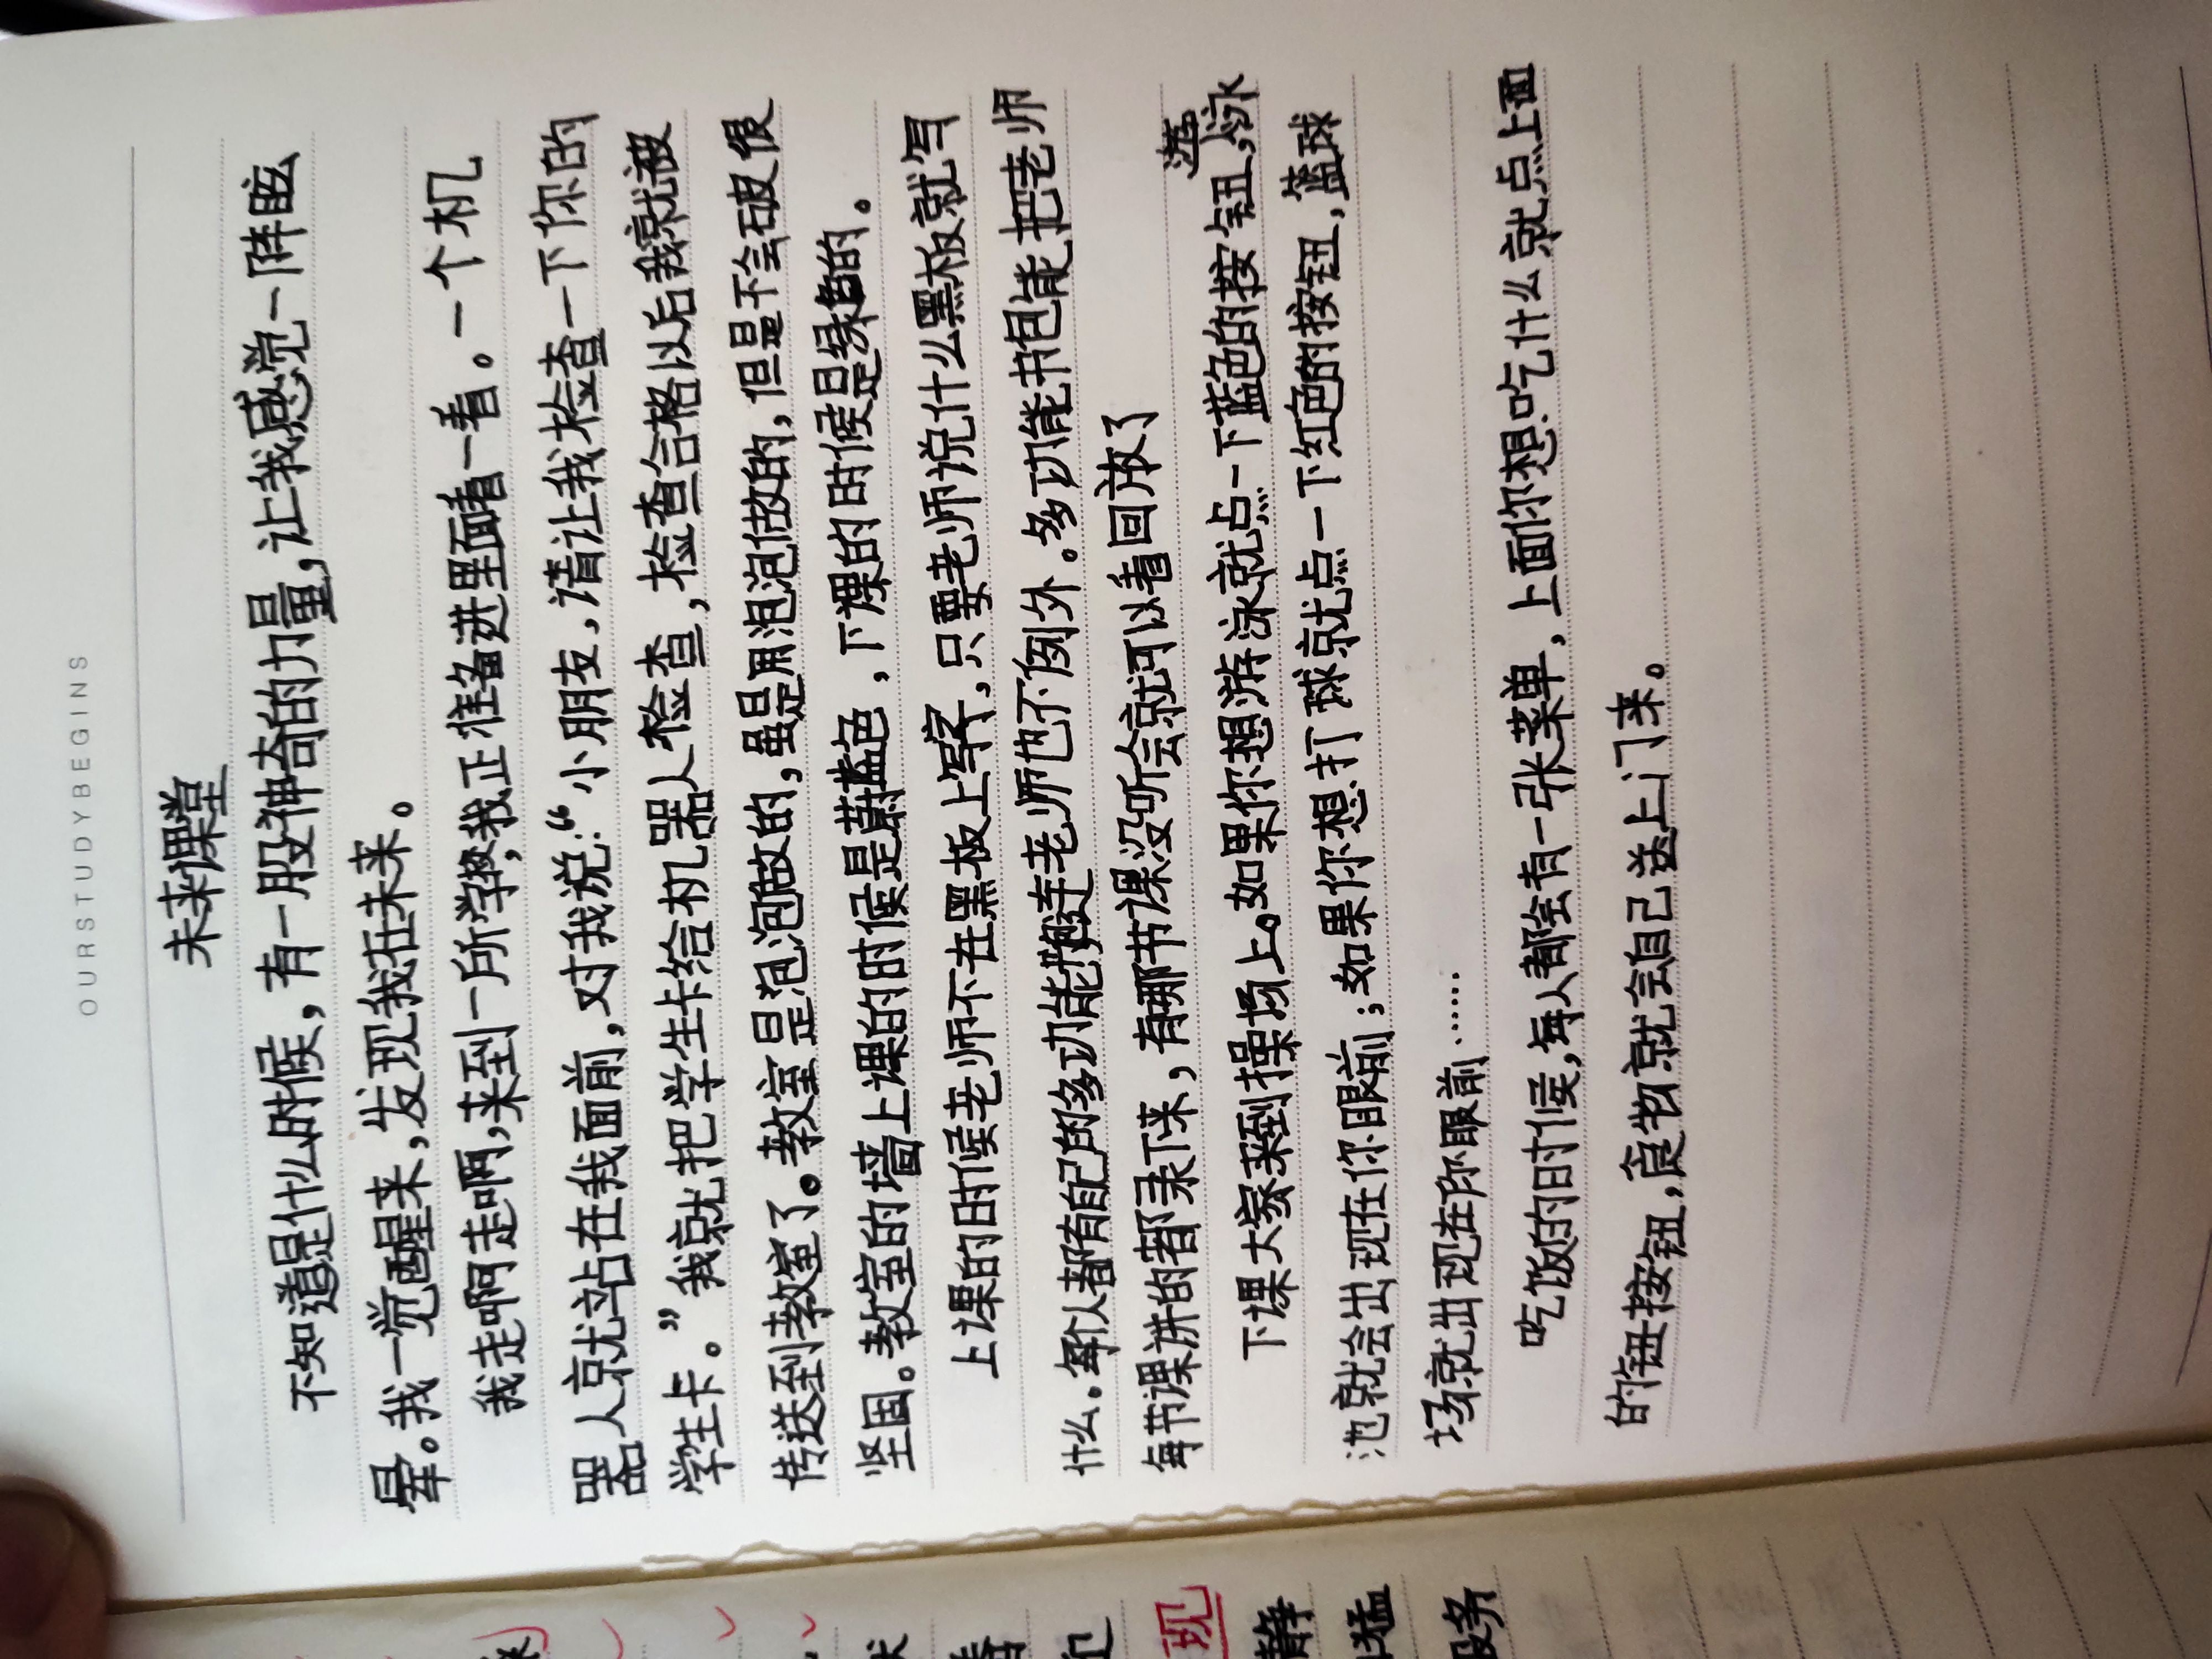 OURSTUDYBEGINS
未来课堂
不知道是什么时候，有一股神奇的力量，让我感觉一阵眩
晕。我一觉醒来，发现我在未来。
我走啊走啊，来到一所学校，我正准备进里面看一看。一个机
器人就站在我面前，对我说：“小朋友，请让我检查一下你的
学生卡。”我就把学生卡给机器人检查，检查合格以后我就被
传送到教室了。教室是泡泡做的，虽是用泡泡做的，但是不会破很
坚固。教室的墙上课的时候是蔚蓝色，下课的时候是绿色的。
上课的时候老师不在黑板上写字，只要老师说什么黑板就写
什么。每个人都有自己的多功能书包连老师也不例外。多功能书包能把老师
每节课讲的都录下来，有哪节课没听会就可以看回放了
下课大家来到操场上。如果你想游泳就点一下蓝色的按钮，游泳
池就会出现在你眼前；如果你想打球就点一下红色的按钮，篮球
场就出现在你眼前……
吃饭的时候，每人都会有一张菜单，上面你想吃什么就点上面
的钮按钮，食物就会自己送上门来。
现
静
猛
服务